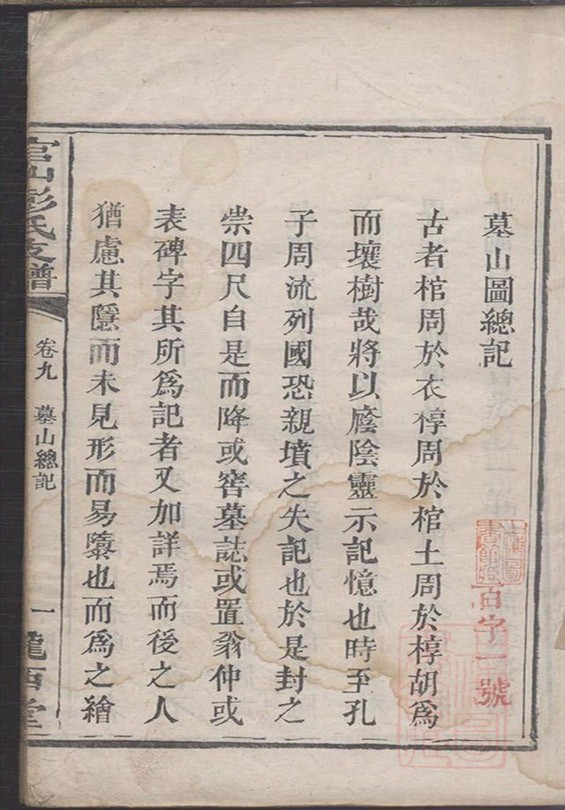 墓山圖總記
古者棺周於衣椁周於棺土周於椁胡爲
而壤樹哉將以廕陰靈示記憶也時至孔
子周流列國恐親墳之失記也於是封之
崇四尺自是而降或窖墓誌或置翁仲或
表碑字其所爲記者又加詳焉而後之人
猶慮其隱而未見形而易隳也而爲之繪
官山彭氏支譜
卷九
墓山總記
一
隴西堂
百字一號